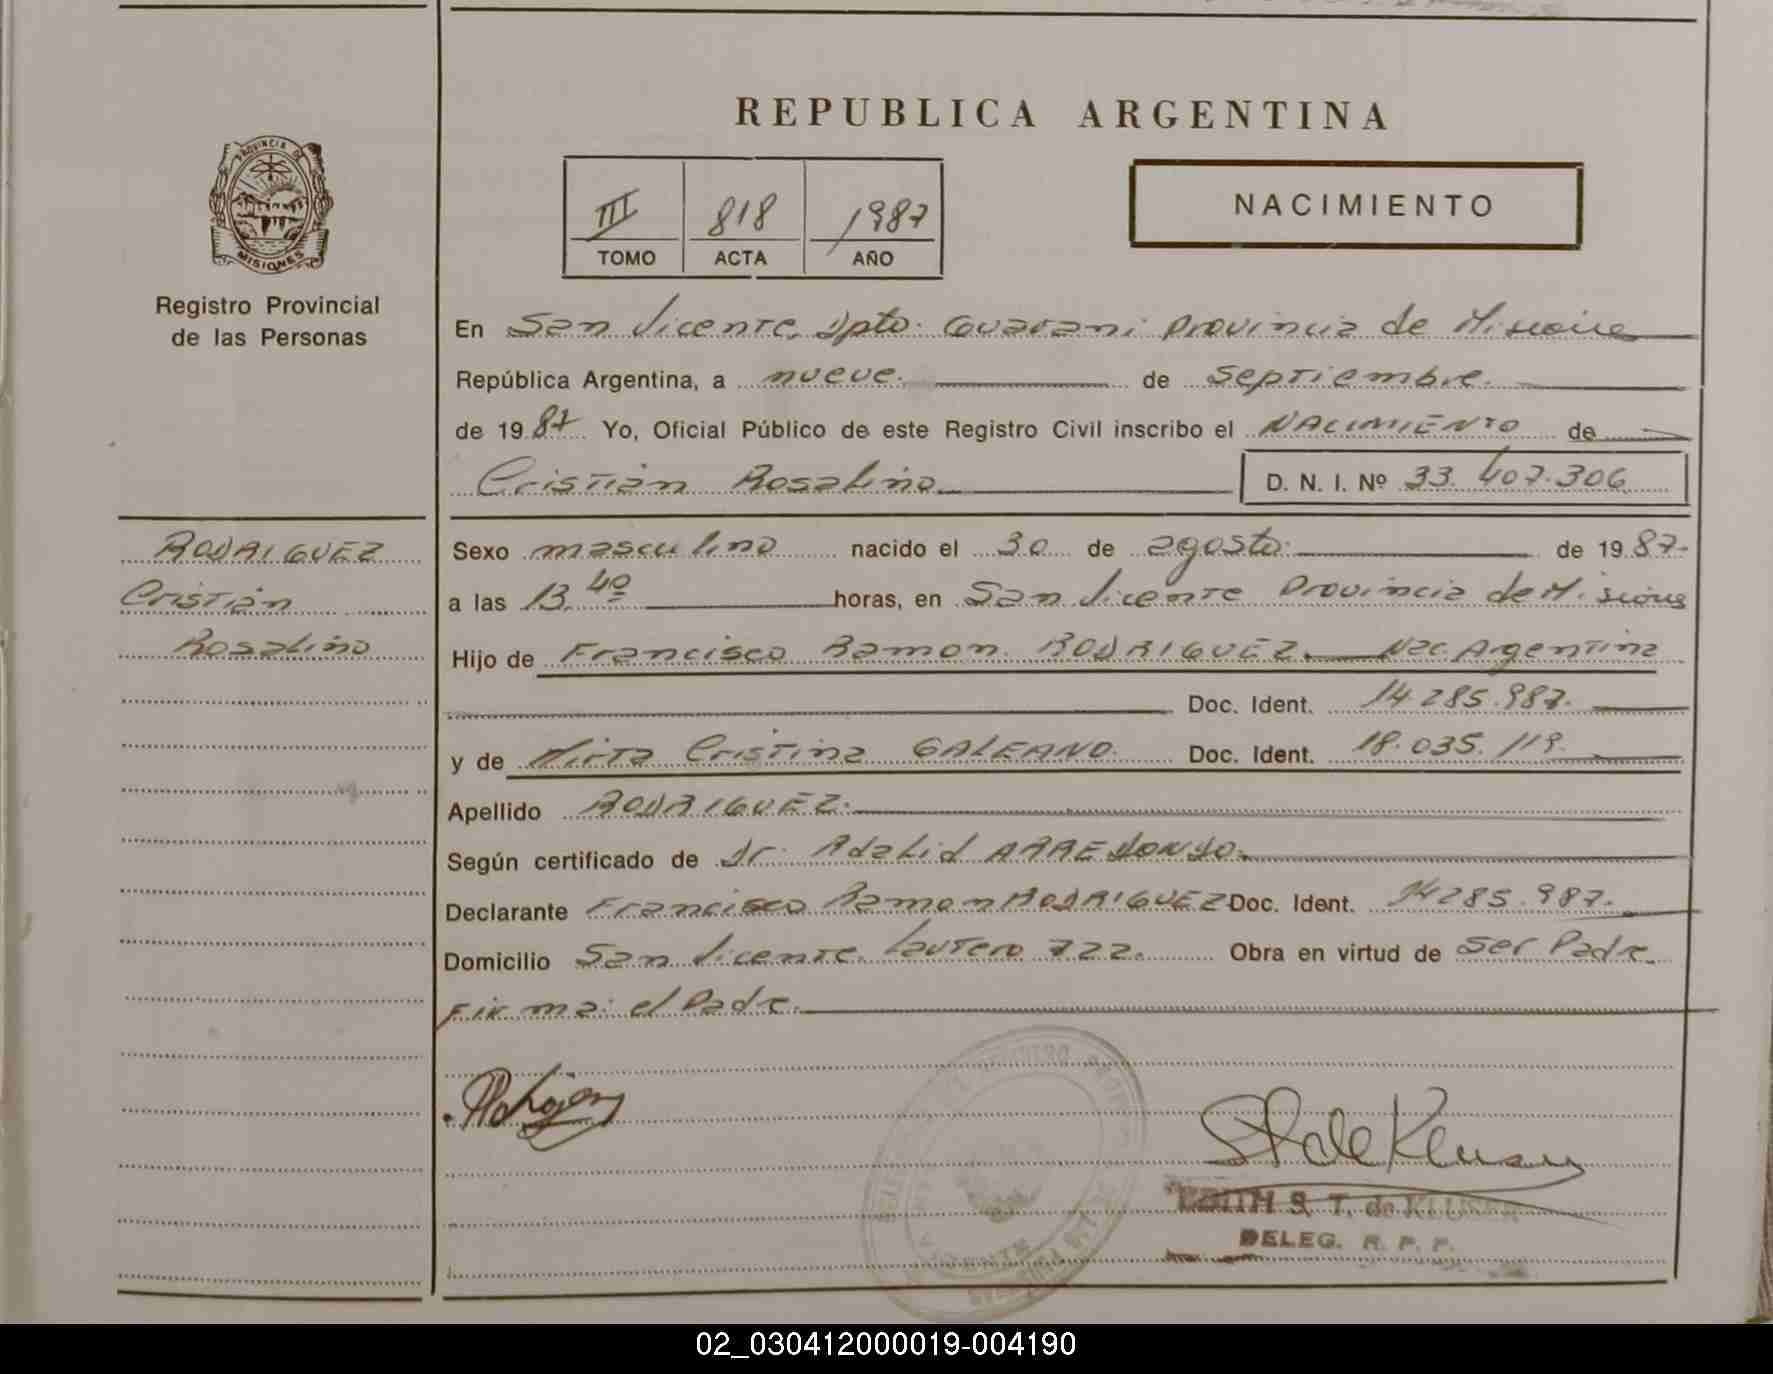 REPUBLICA ARGENTINA
PROVINCIA DE
MISIONES
Registro Provincial
de las Personas
III 818 1987
TOMO ACTA AÑO
NACIMIENTO
En San Vicente, Dpto. Guarani Provincia de Misiones
República Argentina, a nueve. de Septiembre.
de 1987 Yo, Oficial Público de este Registro Civil inscribo el NACIMIENTO de
Cristián Rosalino
D. N. I. Nº 33.407.306
RODRIGUEZ
Cristián
Rosalino
Sexo masculino nacido el 30 de agosto. de 1987.
a las 13.40 horas, en San Vicente Provincia de Misiones
Hijo de Francisco Ramon RODRIGUEZ. Nac. Argentina
Doc. Ident. 14.285.987.
y de Mirta Cristina GALEANO. Doc. Ident. 18.035.119.
Apellido RODRIGUEZ.
Según certificado de Dr. Adalid ARREDONDO.
Declarante Francisco Ramon RODRIGUEZ Doc. Ident. 14.285.987.
Domicilio San Vicente. Lautero 722. Obra en virtud de Ser Padre.
Firma: el Padre.
EDITH S. T. de KLUSER
DELEG. R. P. P.
02_030412000019-004190